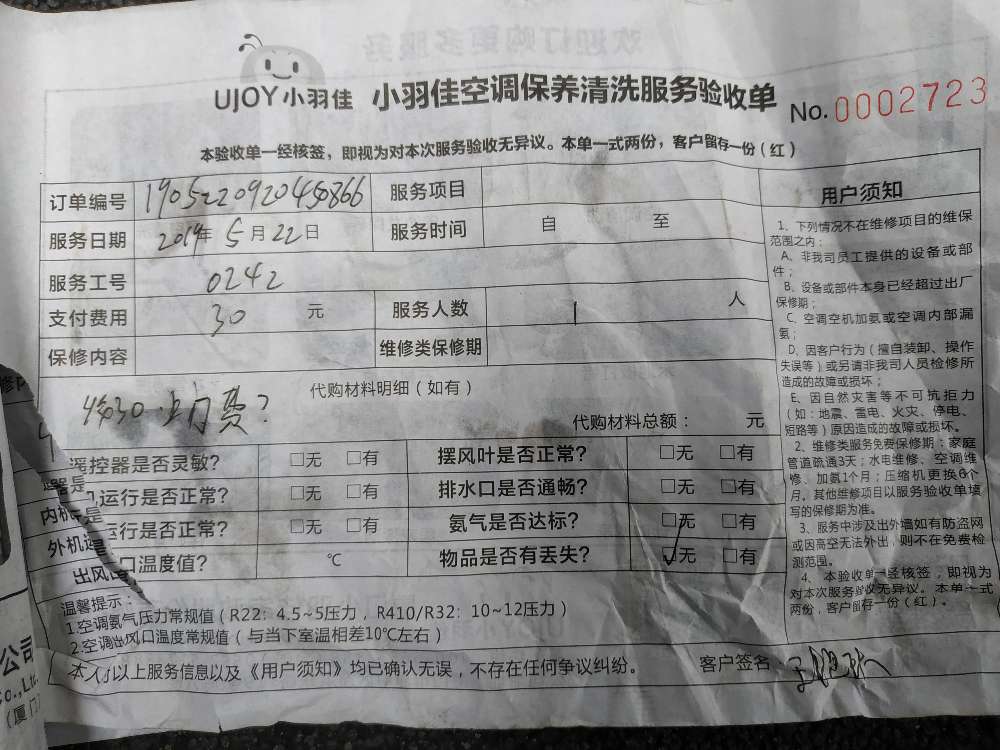 UJOY小羽佳 小羽佳空调保养清洗服务验收单 No. 0002723
本验收单一经核签，即视为对本次服务验收无异议。本单一式两份，客户留存一份（红）
订单编号 190522092045​0866 服务项目
服务日期 2019年 5月22日 服务时间 自 至
服务工号 0242
支付费用 30 元 服务人数 1 人
保修内容 维修类保修期
代购材料明细（如有）
修30.上门费?
代购材料总额： 元
遥控器是否灵敏? □无 □有 摆风叶是否正常? □无 □有
运行是否正常? □无 □有 排水口是否通畅? □无 □有
内机 是 运行是否正常? □无 □有 氨气是否达标? □无 □有
外机运 口温度值? ℃ 物品是否有丢失? ☑无 □有
出风
温馨提示：
1.空调氨气压力常规值（R22：4.5~5压力，R410/R32：10~12压力）
2.空调出风口温度常规值（与当下室温相差10℃左右）
本人以上服务信息以及《用户须知》均已确认无误，不存在任何争议纠纷。 客户签名
用户须知
1、下列情况不在维修项目的维保
范围之内：
A、非我司员工提供的设备或部
件；
B、设备或部件本身已经超过出厂
保修期；
C、空调空机加氨或空调内部漏
氨；
D、因客户行为（擅自装卸、操作
失误等）或另请非我司人员检修所
造成的故障或损坏；
E、因自然灾害等不可抗拒力
（如：地震、雷电、火灾、停电、
短路等）原因造成的故障或损坏。
2、维修类服务免费保修期：家庭
管道疏通3天；水电维修、空调维
修、加氨1个月；压缩机更换6个
月，其他维修项目以服务验收单填
写的保修期为准。
3、服务中涉及出外墙如有防盗网
或因高空无法外出，则不在免费检
测范围。
4、本验收单一经核签，即视为
对本次服务验收无异议。本单一式
两份，客户留存一份（红）。
公司
Co.,Ltd.
（厦门